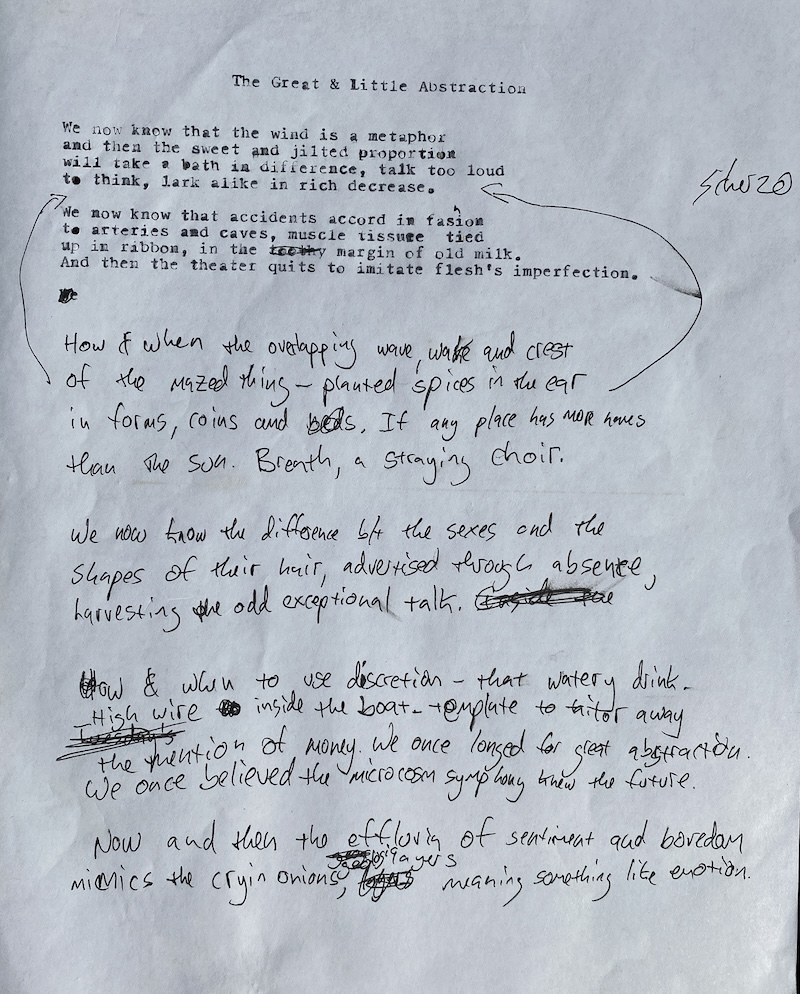 The Great & Little Abstraction
We now know that the wind is a metaphor
and then the sweet and jilted proportion
will take a bath in difference, talk too loud
to think, lark alike in rich decrease.
Scherzo
We now know that accidents accord in fasion
to arteries and caves, muscle tissure tied
up in ribbon, in the toothy margin of old milk.
And then the theater quits to imitate flesh's imperfection.
We
How & when the overlapping wave, wake and crest
of the mazed thing — planted spices in the ear
in forms, coins and beds. If any place has more
than the sun. Breath, a straying choir.
We now know the difference b/t the sexes and the
shapes of their hair, advertised through absence,
harvesting the odd exceptional talk.
How & when to use discretion — that watery drink.
High wire inside the boat - template to away
the mention of money. We once longed for great abstraction.
We once believed the microcosm symphony knew the future.
Now and then the effluvia of sentiment and boredom
layers
mimics the cryin onions, meaning something like emotion.